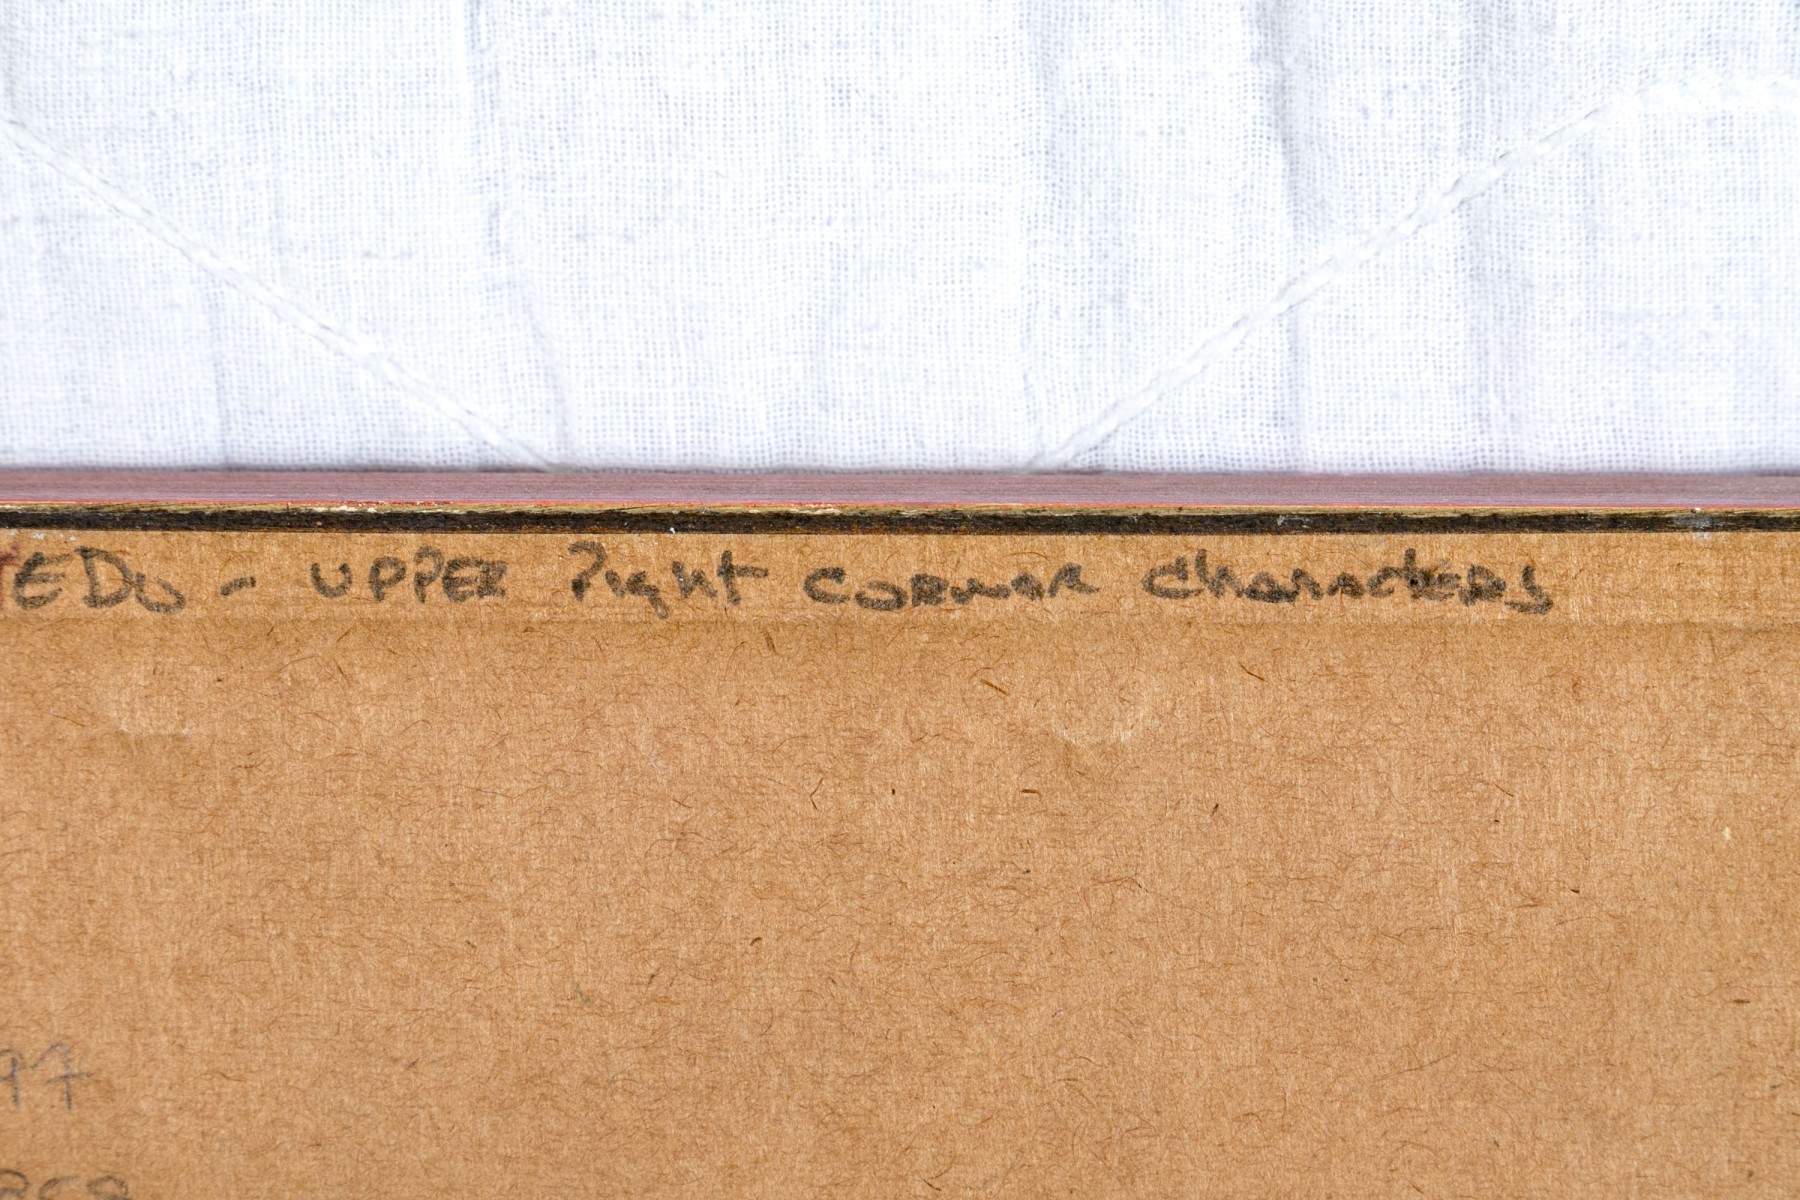 EDO - UPPER Right CORNER Characters
97
858